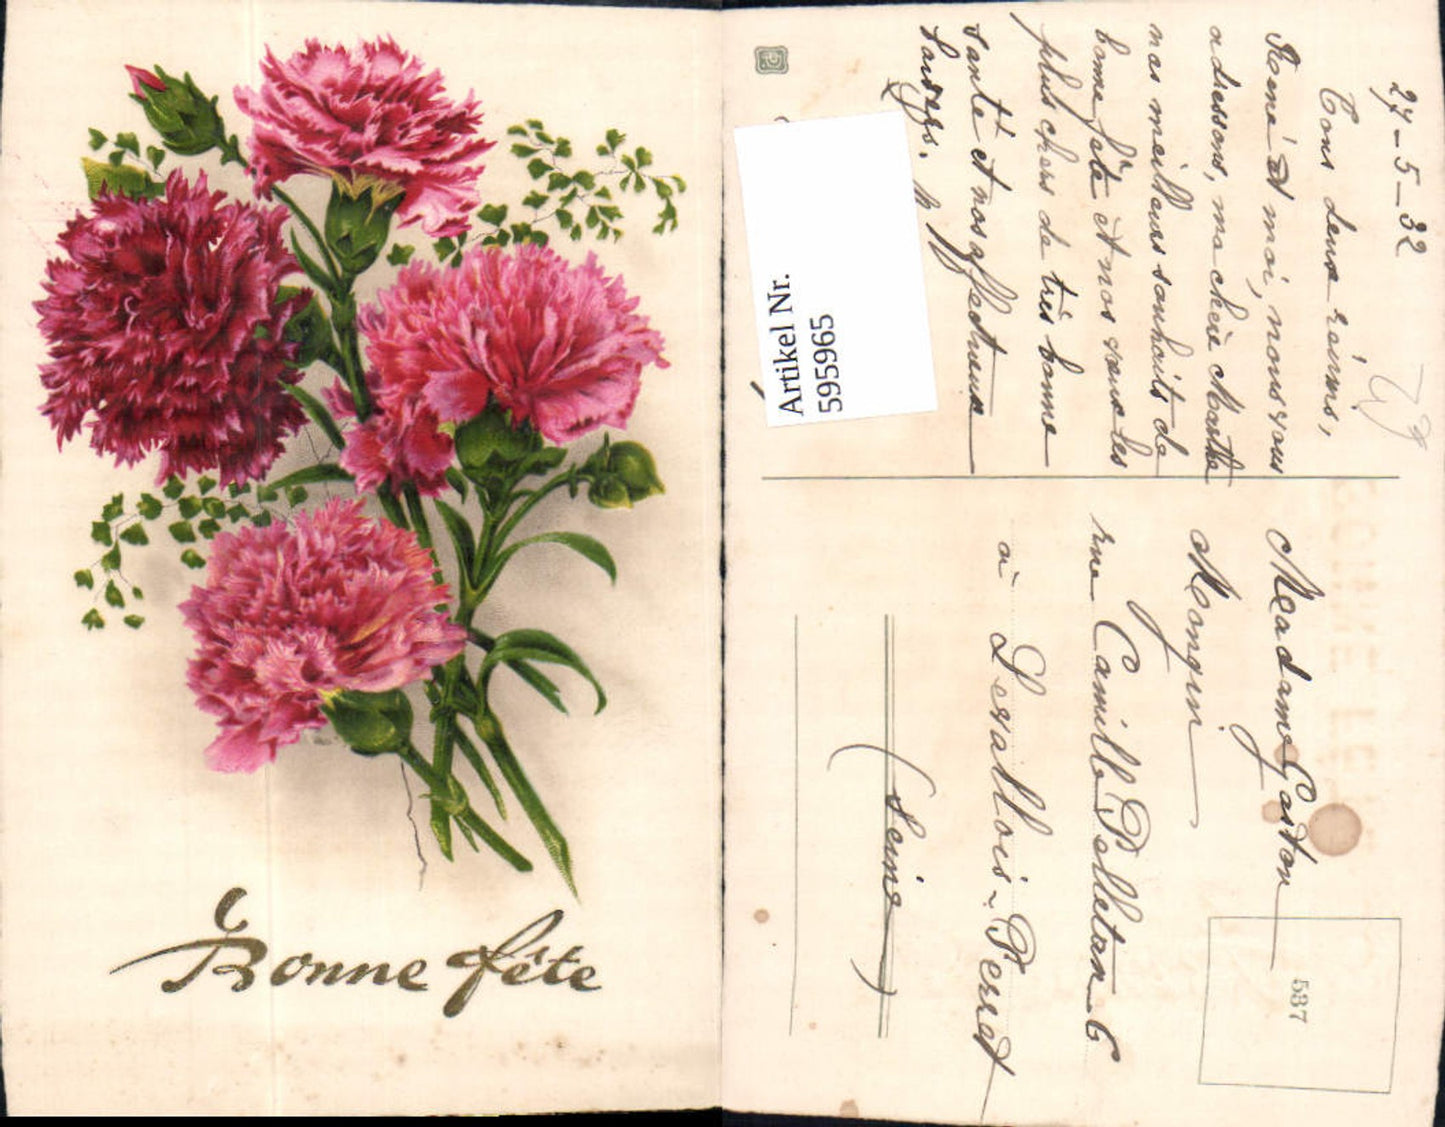 Bonne fête
Artikel Nr.
595965
27-5-32
Tous deux réunis,
René et moi, nous vous
adressons, ma chère Marthe
nos meilleurs souhaits de
bonne fête et nos vœux les
plus chers de très bonne
santé et nos affectueux
baisers.
Madame Gaston
Mongin
rue Camille Pelletan 6
à Levallois-Perret
(Seine)
587